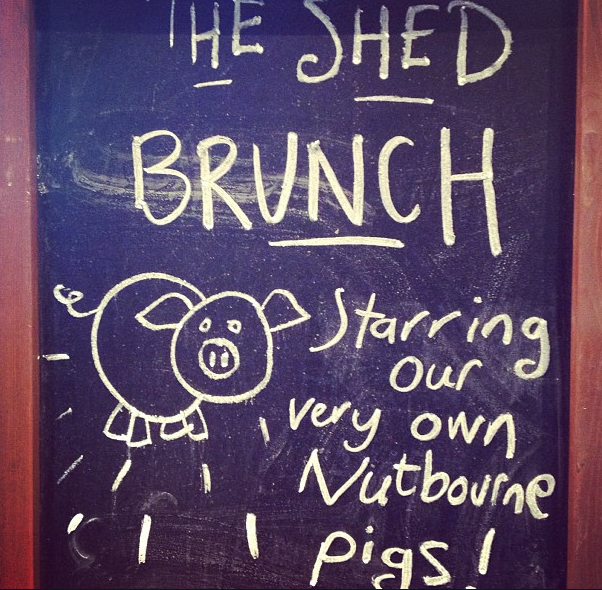 THE SHED
BRUNCH
Starring
our
very own
Nutbourne
pigs!